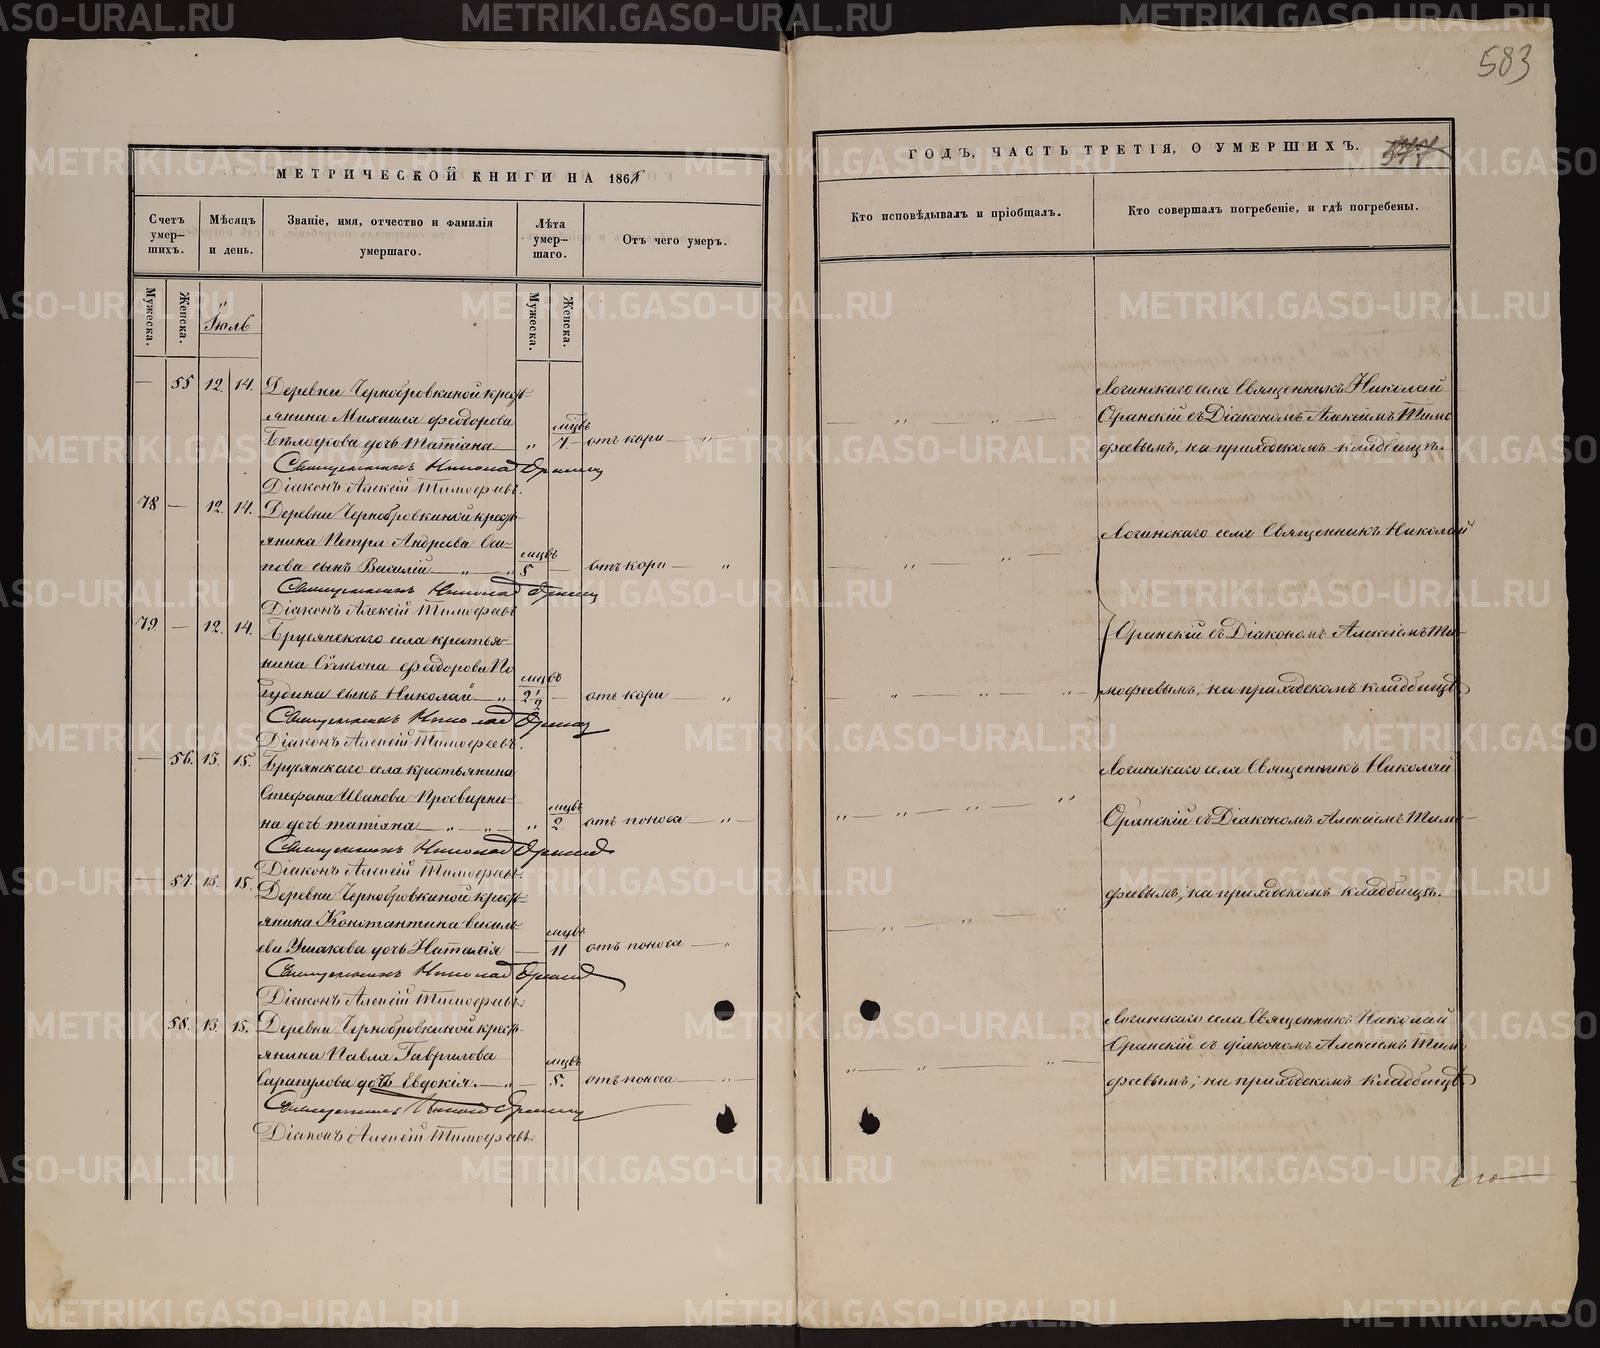 583
МЕТРИЧЕСКОЙ КНИГИ НА 186
ГОДЪ, ЧАСТЬ ТРЕТІЯ, О УМЕРШИХЪ.
Счетъ умер-шихъ.
Мѣсяцъ и день.
Званіе, имя, отчество и фамилія умершаго.
Лѣта умер-шаго.
Отъ чего умеръ.
Кто исповѣдывалъ и пріобщалъ.
Кто совершалъ погребеніе, и гдѣ погребены.
Мужеска.
Женска.
Іюль
Мужеска.
Женска.
— 55 12. 14. Деревни Чернобровкиной кресть-
янина Михаила Феодорова мцвъ
дочь Татіана „ 7 отъ кори — „
Священникъ Николай Оранскій
Діаконъ Алексій Тимофеевъ.
Логинскаго села Священникъ Николай
Оранскій съ Діакономъ Алексіемъ Тимо
феевымъ, на приходскомъ кладбищѣ.
78 — 12. 14. Деревни Чернобровкиной кресть-
янина Петра Андреева Оси- мцвъ
пова сынъ Василій — „ — „ 5 — отъ кори — „
Священникъ Николай Оранскій
Діаконъ Алексій Тимофеевъ
79. — 12. 14. Бруснянскаго села крестья-
нина Сѵмеона Феодорова По мцвъ
гудина сынъ Николай — „ 2 1/2 — отъ кори — „
Священникъ Николай Оранскій
Діаконъ Алексій Тимофеевъ.
Логинскаго села Священникъ Николай
Оранскій съ Діакономъ Алексіемъ Ти-
мофеевымъ, на приходскомъ кладбищѣ
— 56. 13. 15. Бруснянскаго села крестьянина
Стефана Иванова Просвирни- мцвъ
на дочь Татіана — „ — „ — „ 2. отъ поноса — „ —
Священникъ Николай Оранскій
Діаконъ Алексій Тимофеевъ.
— 57. 13. 15. Деревни Чернобровкиной кресть-
янина Константина Василь- мцвъ
ева Ушакова дочь Наталія — 11 отъ поноса — „
Священникъ Николай Оранскій
Діаконъ Алексій Тимофеевъ
Логинскаго села Священникъ Николай
Оранскій съ Діакономъ Алексіемъ Тимо-
феевымъ, на приходскомъ кладбищѣ.
58. 13. 15. Деревни Чернобровкиной кресть-
янина Павла Гаврилова мцвъ
Сарапулова дочь Евдокія. — „ — 5. отъ поноса — „ —
Священникъ Николай Оранскій
Діаконъ Алексій Тимофеевъ.
Логинскаго села Священникъ Николай
Оранскій съ діакономъ Алексіемъ Тимо
феевымъ, на приходскомъ кладбищѣ
METRIKI.GASO-URAL.RU